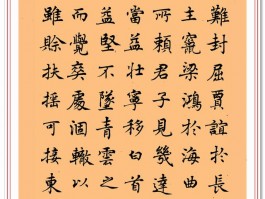 難封屈賈誼於長
主竄梁鴻於海曲
所賴君子見幾達
當益壯寧移白首
益堅不墜青雲之
而覺爽處涸轍以
雖賒扶搖可接東